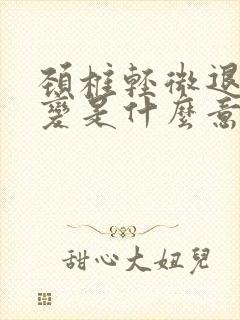 頚椎輕微退
變是什麼意
甜心大妞兒